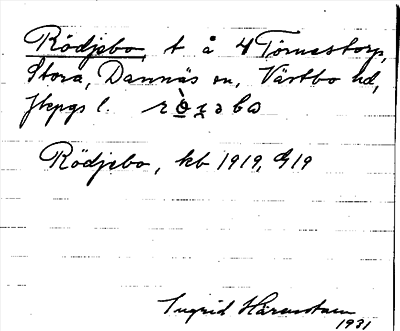 Rödjebo, t å 4 Törnestorp,
Stora, Dannäs sn, Västbo hd,
Jkpgs l.
Rödjebo, kb 1919, G19
Ingrid Härenstam
1931